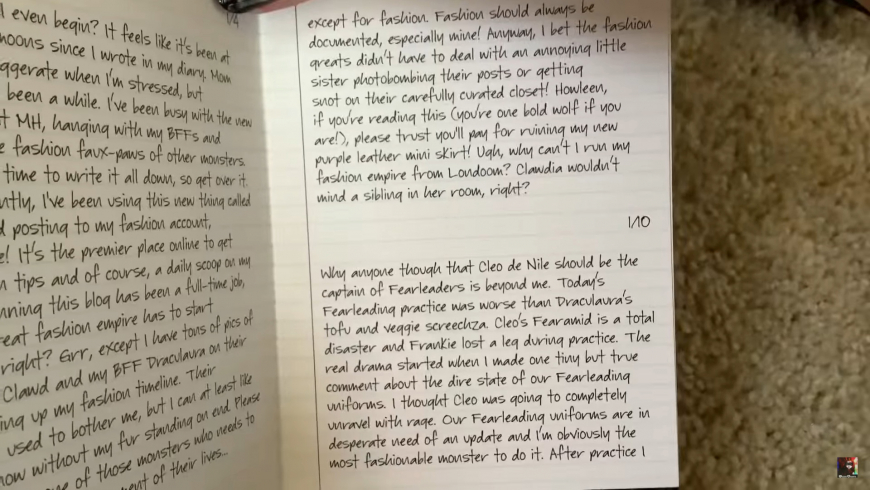 1/4
l even begin? It feels like it's been at
moons since I wrote in my diary. Mom
aggerate when I'm stressed, but
been a while. I've been busy with the new
t MH, hanging with my BFFs and
e fashion faux-paws of other monsters.
time to write it all down, so get over it.
ntly, I've been using this new thing called
d posting to my fashion account,
e! It's the premier place online to get
n tips and of course, a daily scoop on my
nning this blog has been a full-time job,
eat fashion empire has to start
right? Grr, except I have tons of pics of
Clawd and my BFF Draculaura on their
ing up my fashion timeline. Their
used to bother me, but I can at least like
now without my fur standing on end. Please
one of those monsters who needs to
ent of their lives...
except for fashion. Fashion should always be
documented, especially mine! Anyway, I bet the fashion
greats didn't have to deal with an annoying little
sister photobombing their posts or getting
snot on their carefully curated closet! Howleen,
if you're reading this (you're one bold wolf if you
are!), please trust you'll pay for ruining my new
purple leather mini skirt! Ugh, why can't I run my
fashion empire from Londoom? Clawdia wouldn't
mind a sibling in her room, right?
1/10
Why anyone though that Cleo de Nile should be the
captain of Fearleaders is beyond me. Today's
Fearleading practice was worse than Draculaura's
tofu and veggie screechza. Cleo's Fearamid is a total
disaster and Frankie lost a leg during practice. The
real drama started when I made one tiny but true
comment about the dire state of our Fearleading
uniforms. I thought Cleo was going to completely
unravel with rage. Our Fearleading uniforms are in
desperate need of an update and I'm obviously the
most fashionable monster to do it. After practice I